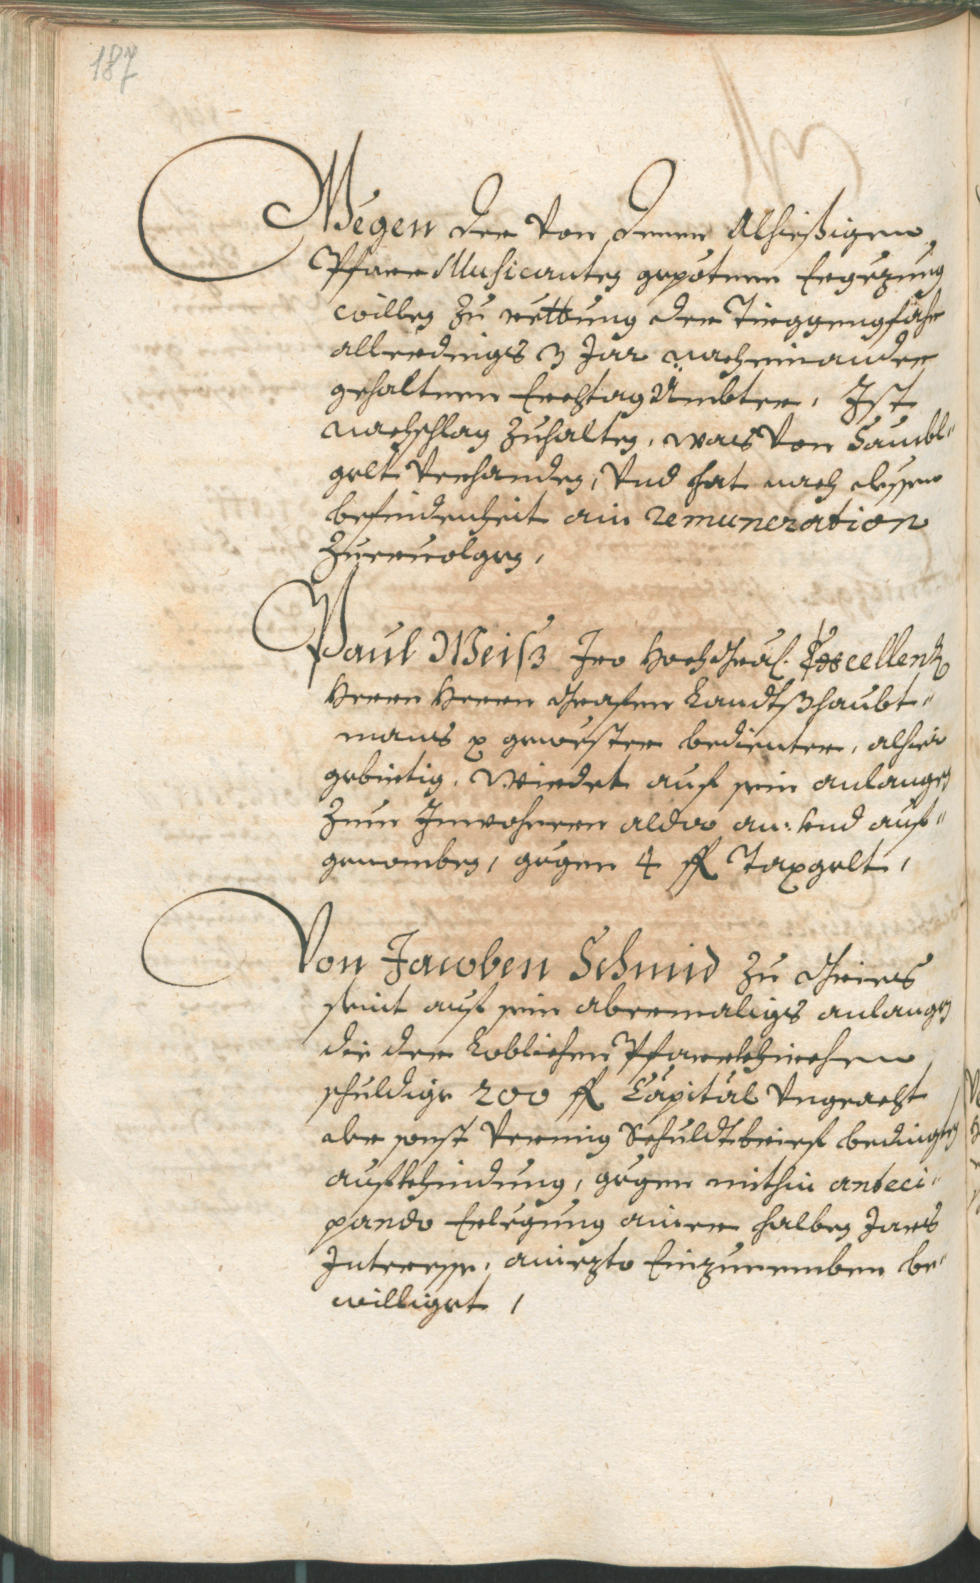 187
Wegen der von denen Alhießigen
Pfarr Musicanten gepotnen Ergezung
willen zu rettung der Tirggengfähr
allerdings 3 Jar nacheinander
gehaltnen Erchtag Ämbter, Ist
nachschlag zuhalten, was von Sambl„
gelt verhanden, Vnd hat nach dessen
befindenheit ain remuneration
zuervolgen,
Paul Weiß Iro Hochgräfl. Excellenz
Herrn Herrn Grafen Landtßhaubt„
mans gewester bedienter, alhier
gebirtig, wirdet auf sein anlangen
zum Inwohnern alda an: und auf„
genomben, gegen 4 fl Taxgelt,
Von Jacoben Schmid zu Gries
seint auf sein abermaligs anlangen
die der Loblichen Pfarrkhirchen
schuldige 200 fl Capital Vngeacht
der sonst vermig Schuldtbrief bedingten
aufkhindung, gegen mithin anteci„
pando Erlegung ainer halben Jars
Interesse, aniezto Einzunemben be„
williget,